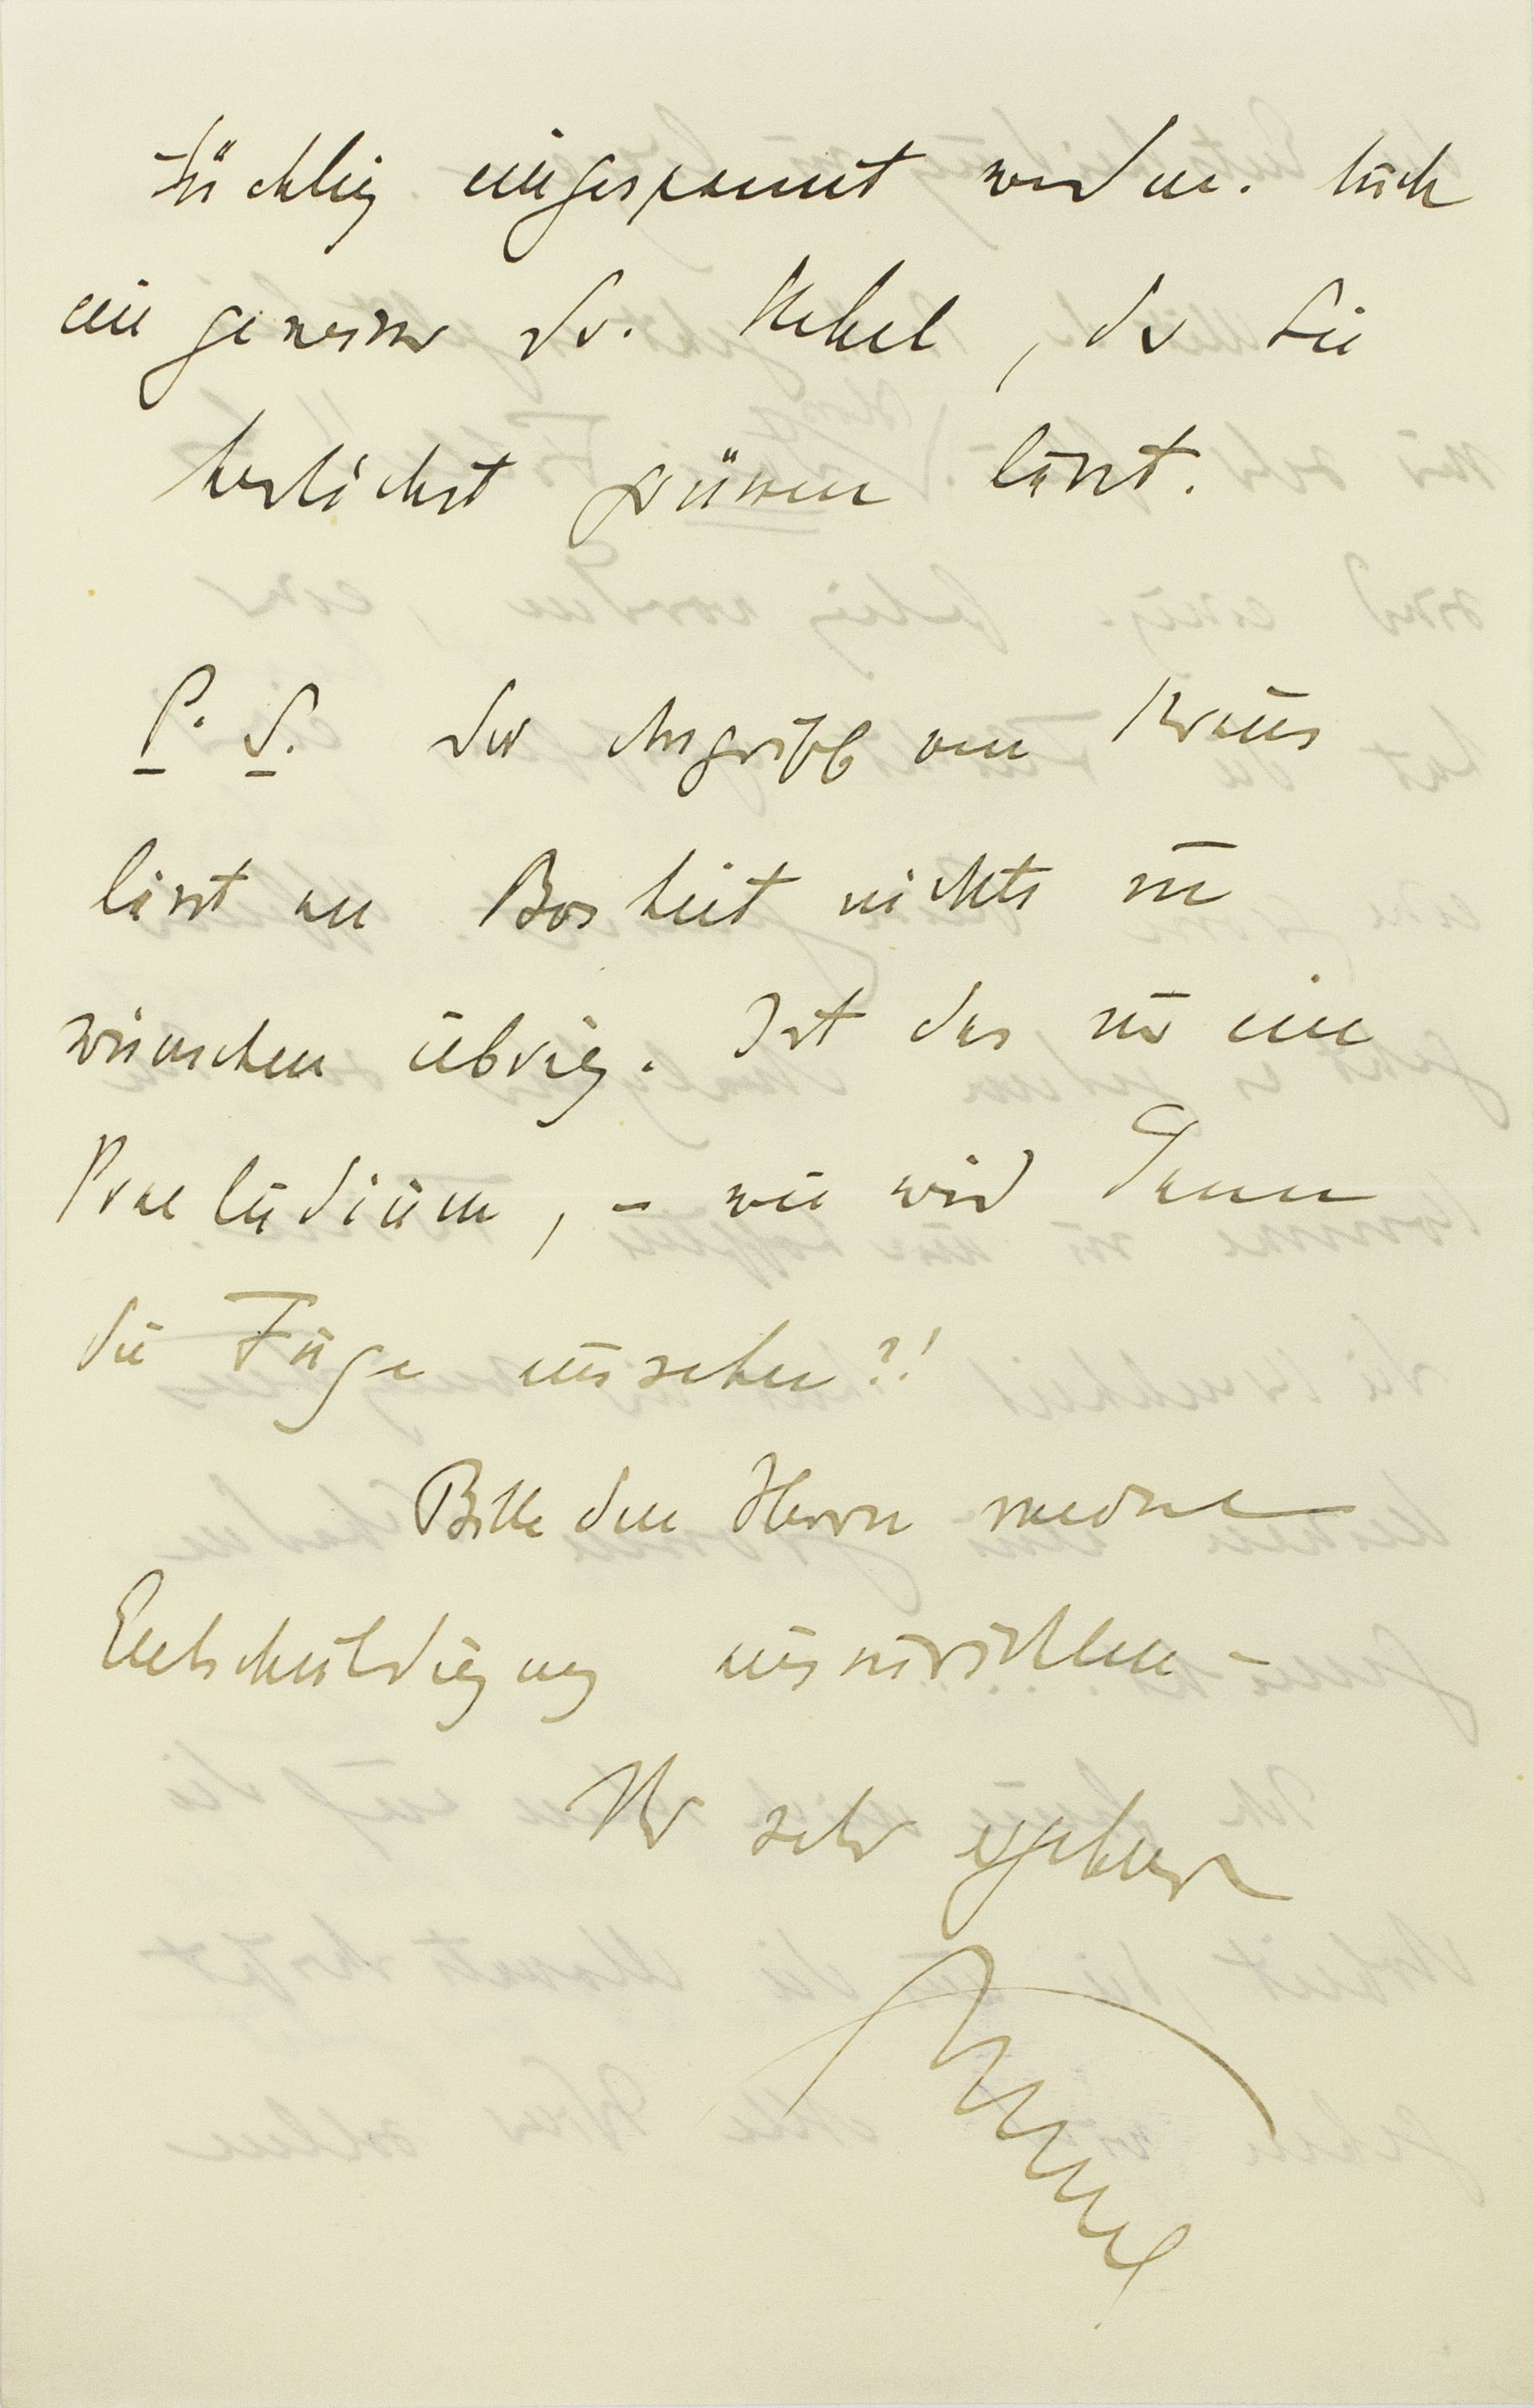 tüchtig eingespannt werden. Auch
ein gewisser Dr. Hebel, der Sie
herzlichst grüssen lässt.
P. S. Der Angriff von Kraus
lässt an Bosheit nichts zu
wünschen übrig. Ist das nur ein
Praeludium, – wie wird dann
die Fuge aussehen?!
Bitte den Herrn meine
Entschuldigung auszurichten –
Ihr sehr ergebener